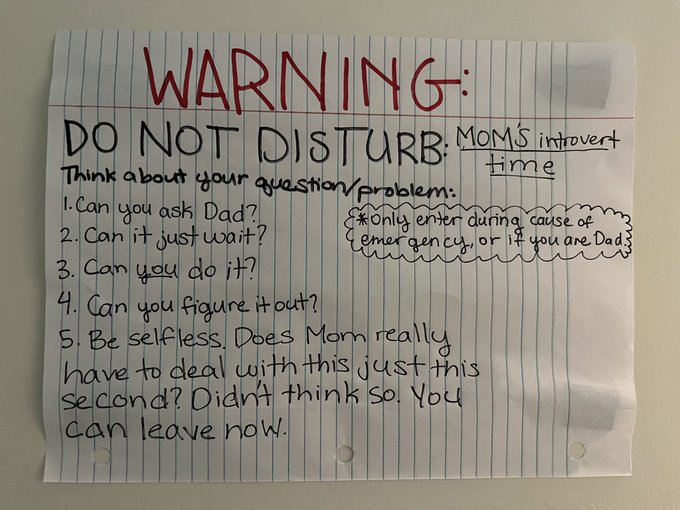 WARNING:
DO NOT DISTURB: MOM'S introvert
time
Think about your question/problem:
1. Can you ask Dad?
2. Can it just wait?
3. Can you do it?
4. Can you figure it out?
5. Be selfless. Does Mom really
have to deal with this just this
second? Didn't think so. You
can leave now.
*Only enter during cause of
emergency, or if you are Dad.